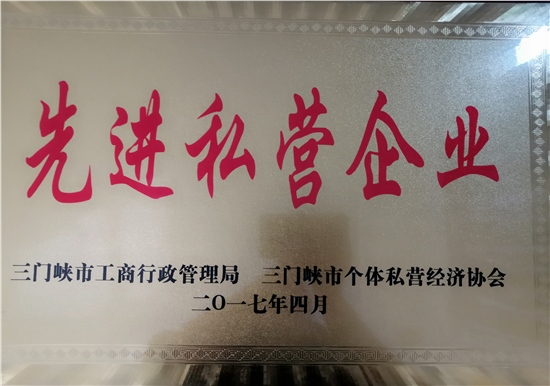 先进私营企业
三门峡市工商行政管理局 三门峡市个体私营经济协会
二O一七年四月